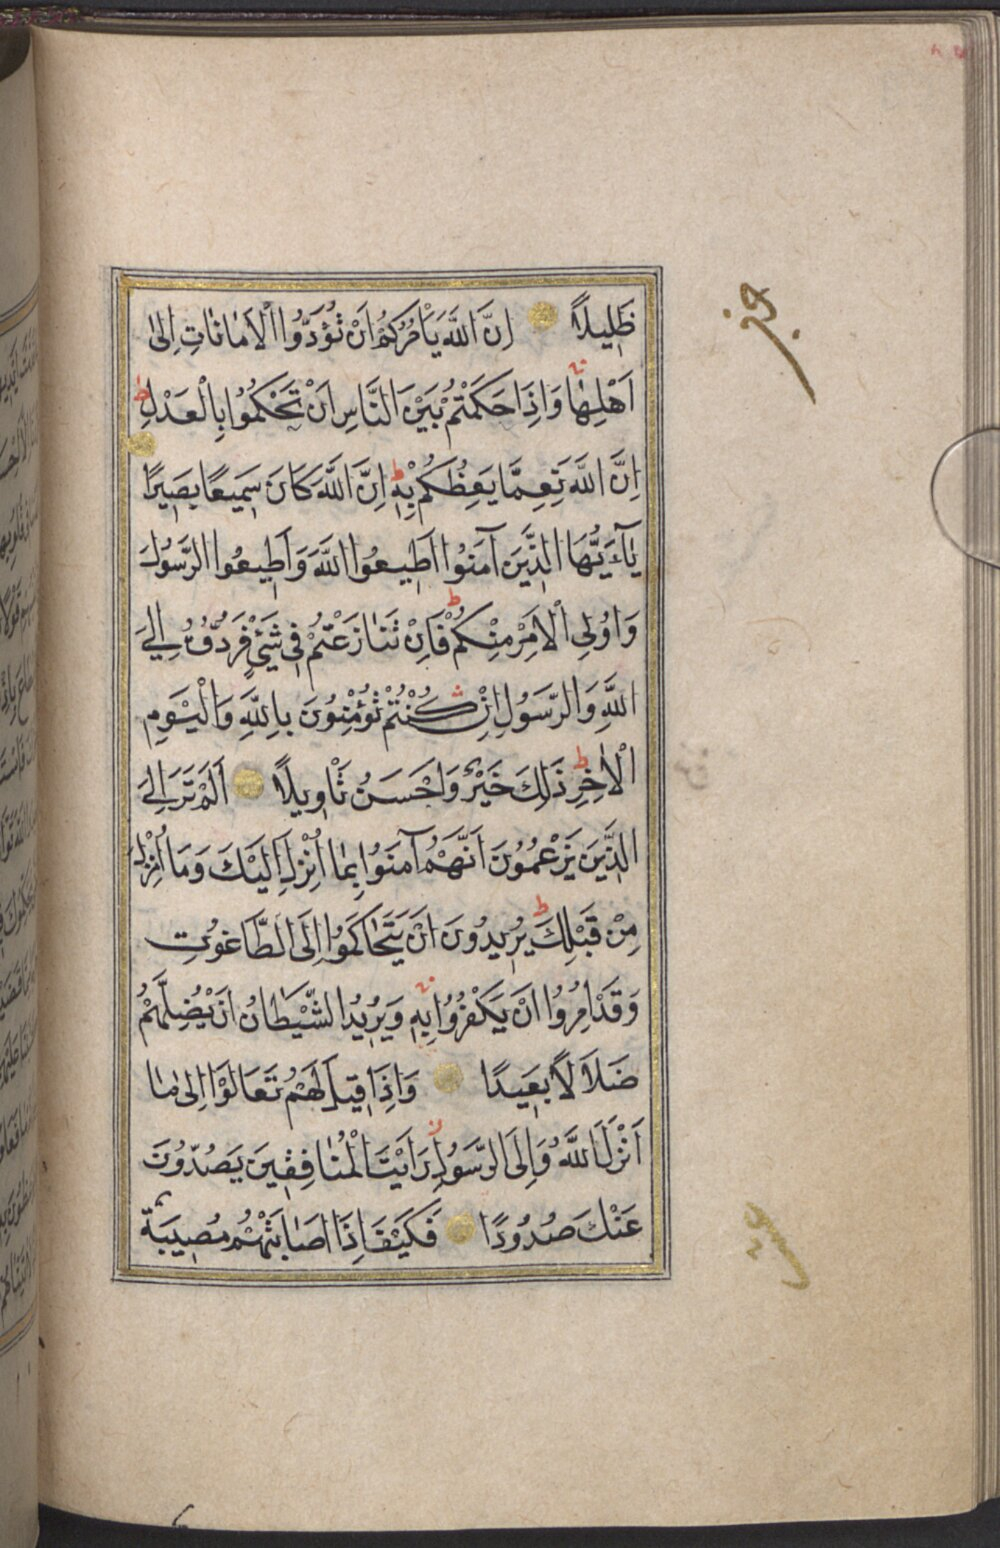 ظَلِيلًا اِنَّ اللّٰهَ يَاْمُرُكُمْ اَنْ تُؤَدُّوا الْاَمَانَاتِ اِلٰى
اَهْلِهَا وَاِذَا حَكَمْتُمْ بَيْنَ النَّاسِ اَنْ تَحْكُمُوا بِالْعَدْلِ
اِنَّ اللّٰهَ نِعِمَّا يَعِظُكُمْ بِهِ اِنَّ اللّٰهَ كَانَ سَمِيعًا بَصِيرًا
يَآءَيُّهَا الَّذِينَ آمَنُوا اَطِيعُوا اللّٰهَ وَاَطِيعُوا الرَّسُولَ
وَاُولِى الْاَمْرِ مِنْكُمْ فَاِنْ تَنَازَعْتُمْ فِى شَىْءٍ فَرُدُّوهُ اِلَى
اللّٰهِ وَالرَّسُولِ اِنْ كُنْتُمْ تُؤْمِنُونَ بِاللّٰهِ وَالْيَوْمِ
الْاٰخِرِ ذٰلِكَ خَيْرٌ وَاَحْسَنُ تَاْوِيلًا اَلَمْ تَرَ اِلَى
الَّذِينَ يَزْعُمُونَ اَنَّهُمْ آمَنُوا بِمَا اُنْزِلَ اِلَيْكَ وَمَا اُنْزِلَ
مِنْ قَبْلِكَ يُرِيدُونَ اَنْ يَتَحَاكَمُوا اِلَى الطَّاغُوتِ
وَقَدْ اُمِرُوا اَنْ يَكْفُرُوا بِهِ وَيُرِيدُ الشَّيْطَانُ اَنْ يُضِلَّهُمْ
ضَلَالًا بَعِيدًا وَاِذَا قِيلَ لَهُمْ تَعَالَوْا اِلٰى مَا
اَنْزَلَ اللّٰهُ وَاِلَى الرَّسُولِ رَاَيْتَ الْمُنَافِقِينَ يَصُدُّونَ
عَنْكَ صُدُودًا فَكَيْفَ اِذَا اَصَابَتْهُمْ مُصِيبَةٌ